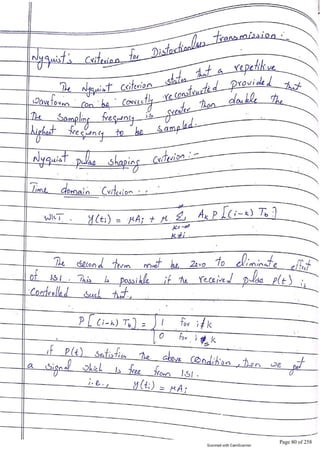 Nyquist's Criterion for Distortionless transmission :-
The Nyquist criterion states that a repetitive
waveform can be correctly reconstructed provided that
the sampling frequency is greater than double the
highest frequency to be sampled.
Nyquist pulse shaping Criterion :-
Time domain Criterion :-
WKT . y(ti) = μAi + μ Σ Ak P [(i-k) Tb]
k=-∞
k≠i
The second term must be zero to eliminate effect
of ISI. This is possible if the received pulse p(t) is
Controlled such that,
P [(i-k) Tb] = { 1 for i=k
0 for i≠k
if P(t) satisfies the above condition, then we get
a signal which is free from ISI.
i.e., y(ti) = μAi
Scanned with CamScanner
Page 80 of 258